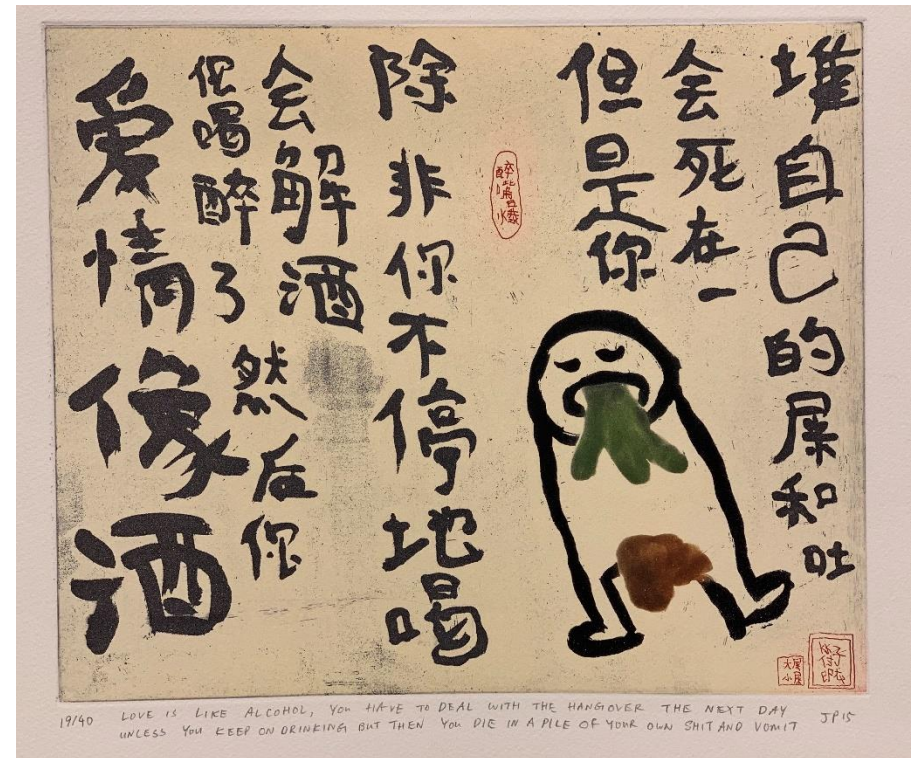 爱情像酒
你喝醉了然后你
会解酒
除非你不停地喝
但是你
会死在一
堆自己的屎和吐
19/40
LOVE IS LIKE ALCOHOL, YOU HAVE TO DEAL WITH THE HANGOVER THE NEXT DAY
UNLESS YOU KEEP ON DRINKING BUT THEN YOU DIE IN A PILE OF YOUR OWN SHIT AND VOMIT
JP15